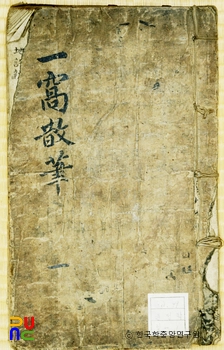 一窩散華
一
© 한국학중앙연구원